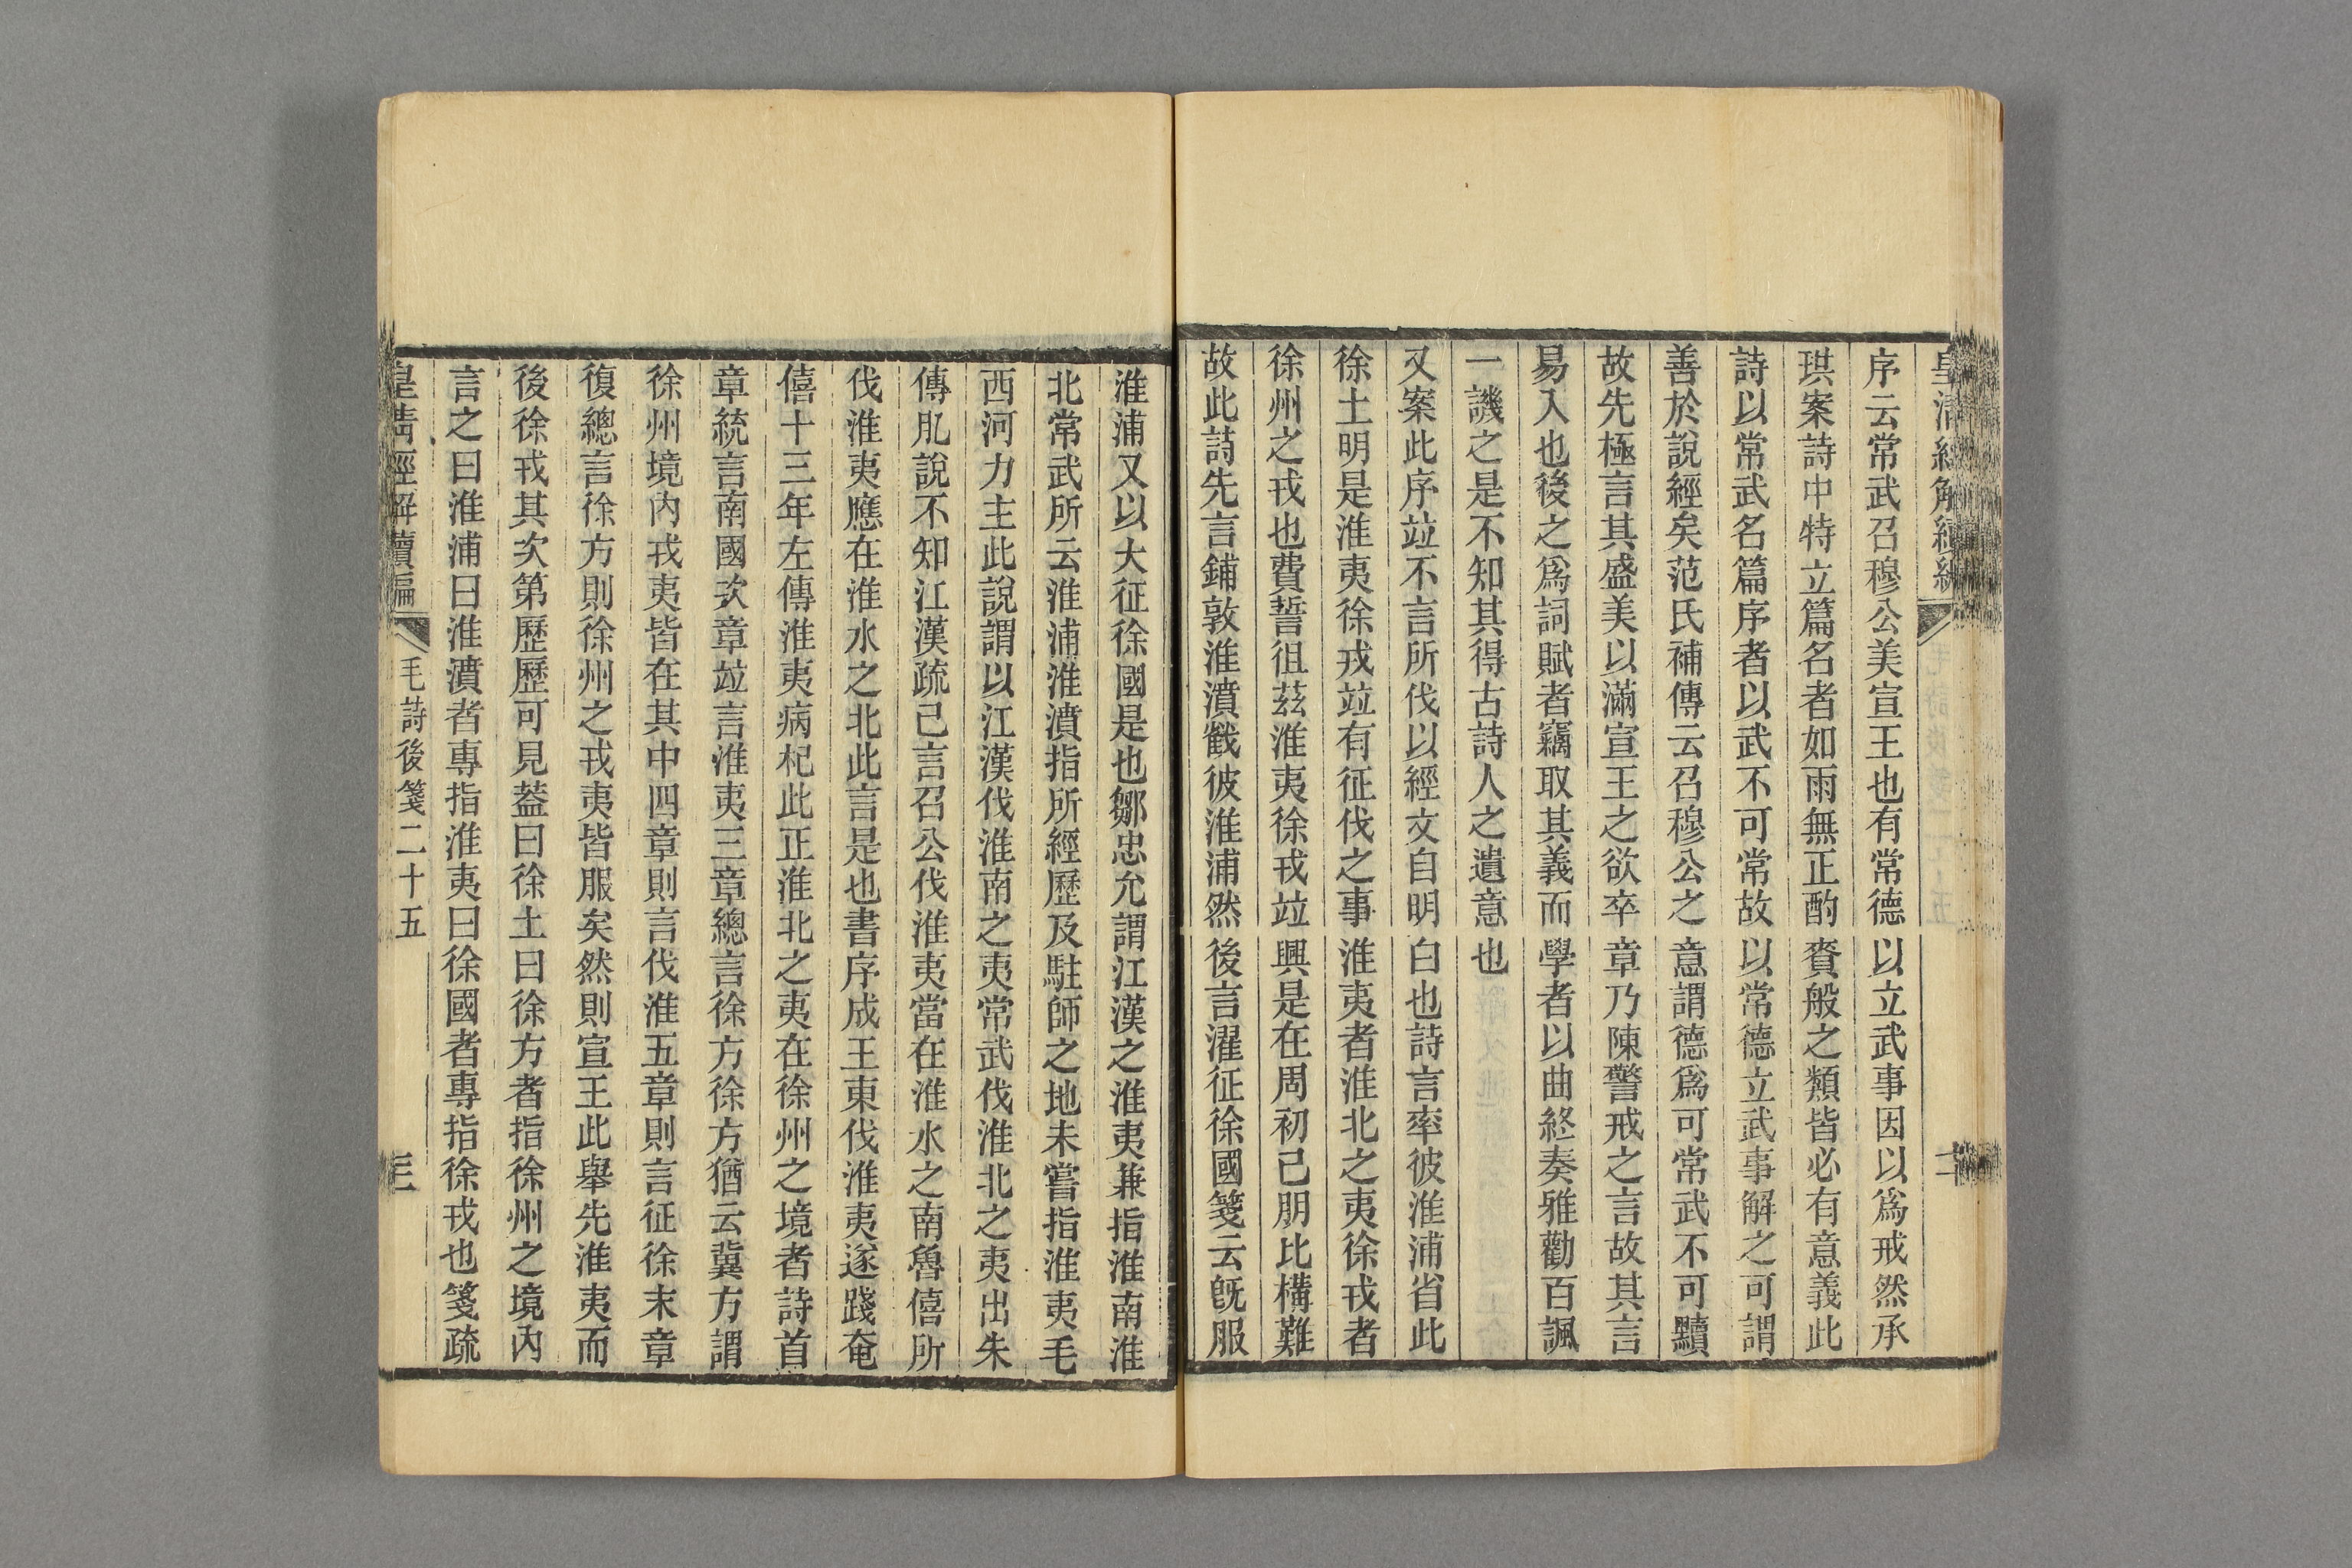 皇清經解續編
序云常武召穆公美宣王也有常德以立武事因以爲戒然承
珙案詩中特立篇名者如雨無正酌賚般之類皆必有意義此
詩以常武名篇序者以武不可常故以常德立武事解之可謂
善於說經矣范氏補傳云召穆公之意謂德爲可常武不可黷
故先極言其盛美以滿宣王之欲卒章乃陳警戒之言故其言
易入也後之爲詞賦者竊取其義而學者以曲終奏雅勸百諷
一譏之是不知其得古詩人之遺意也
又案此序竝不言所伐以經文自明白也詩言率彼淮浦省此
徐土明是淮夷徐戎竝有征伐之事淮夷者淮北之夷徐戎者
徐州之戎也費誓徂茲淮夷徐戎竝興是在周初已朋比構難
故此詩先言鋪敦淮濆戳彼淮浦然後言濯征徐國箋云旣服
淮浦又以大征徐國是也鄒忠允謂江漢之淮夷兼指淮南淮
北常武所云淮浦淮濆指所經歷及駐師之地未嘗指淮夷毛
西河力主此說謂以江漢伐淮南之夷常武伐淮北之夷出朱
傳肊說不知江漢疏已言召公伐淮夷當在淮水之南魯僖所
伐淮夷應在淮水之北此言是也書序成王東伐淮夷遂踐奄
僖十三年左傳淮夷病杞此正淮北之夷在徐州之境者詩首
章統言南國次章竝言淮夷三章總言徐方徐方猶云冀方謂
徐州境內戎夷皆在其中四章則言伐淮五章則言征徐末章
復總言徐方則徐州之戎夷皆服矣然則宣王此舉先淮夷而
後徐戎其次第歷歷可見葢曰徐土曰徐方者指徐州之境內
言之曰淮浦曰淮濆者專指淮夷曰徐國者專指徐戎也箋疏
皇清經解續編
毛詩後箋二十五
三